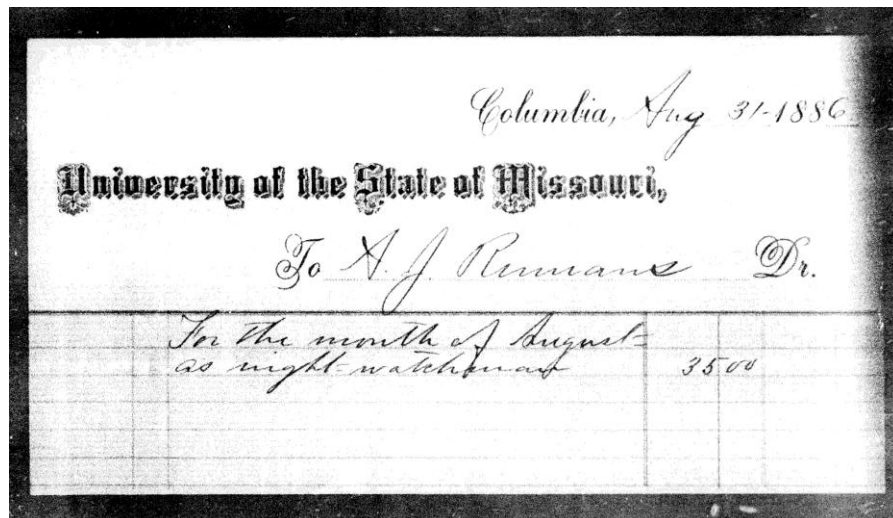 Columbia, Aug 31-1886
University of the State of Missouri,
To A. J. Dr.
For the month of August
as night-watchman 35 00